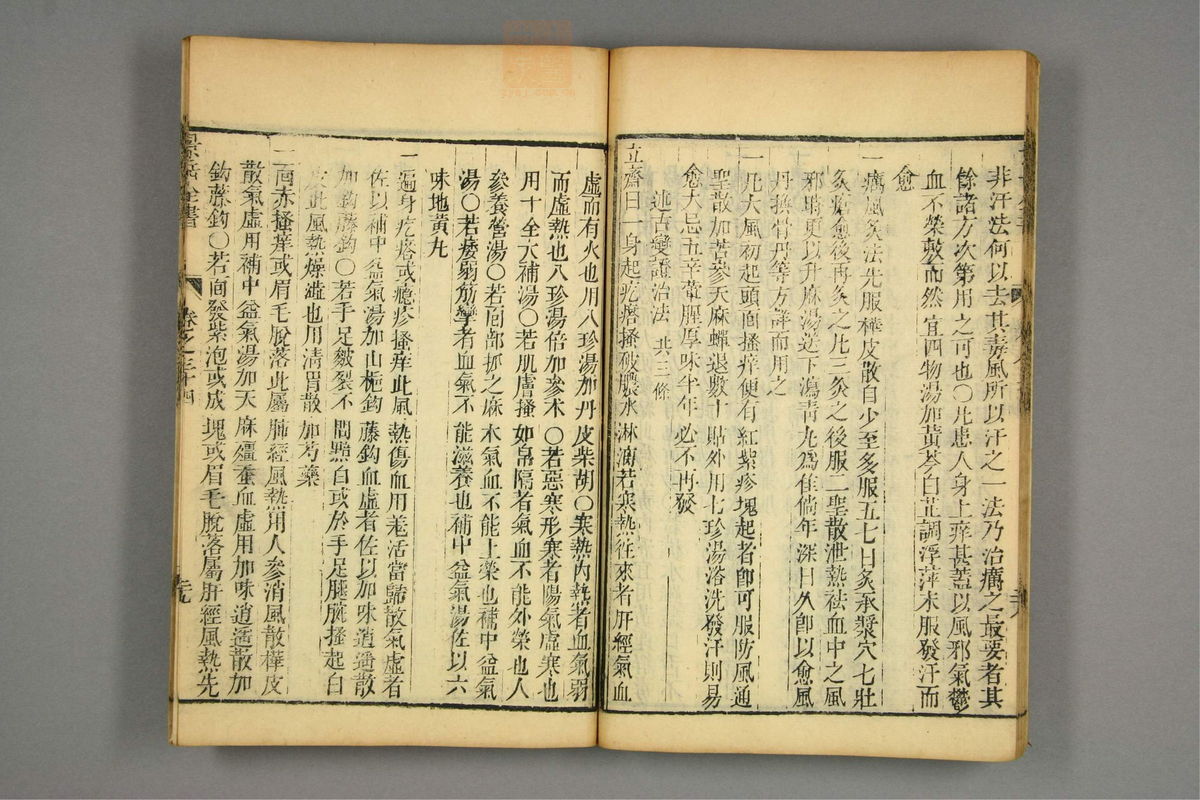 非汗法何以去其毒風所以汗之一法乃治癘之最要者其
餘諸方次第用之可也○凡患人身上痒甚蓋以風邪氣鬱
血不榮敷而然宜四物湯加黃芩白芷調浮萍末服發汗而
愈
一癘風灸法先服樺皮散自少至多服五七日灸承漿穴七壯
灸瘡愈後再灸之凡三灸之後服二聖散泄熱祛血中之風
邪時更以升麻湯送下瀉青丸爲佳倘年深日久卽以愈風
丹換骨丹等方詳而用之
一凡大風初起頭面搔痒便有紅紫疹塊起者卽可服防風通
聖散加苦參天麻蟬退數十貼外用七珍湯浴洗發汗則易
愈大忌五辛葷腥厚味半年必不再發
述古變證治法 共三條
立齋曰一身起疙瘩搔破膿水淋漓若寒熱往來者肝經氣血
虛而有火也用八珍湯加丹皮柴胡○寒熱內熱者血氣弱
而虛熱也八珍湯倍加參术○若惡寒形寒者陽氣虛寒也
用十全大補湯○若肌膚搔如帛隔者氣血不能外榮也人
參養營湯○若面部抓之麻木氣血不能上榮也補中益氣
湯○若痿弱筋攣者血氣不能滋養也補中益氣湯佐以六
味地黃丸
一遍身疙瘩或癮疹搔痒此風熱傷血用羗活當歸散氣虛者
佐以補中益氣湯加山梔鈎藤鈎血虛者佐以加味逍遥散
加鈎藤鈎○若手足皴裂不問黑白或於手足腿腕搔起白
皮此風熱燥澁也用清胃散加芍藥
一面赤搔痒或眉毛脫落此屬肺經風熱用人參消風散樺皮
散氣虛用補中益氣湯加天麻殭蚕血虛用加味逍遥散加
鈎藤鈎○若面發紫泡或成塊或眉毛脫落屬肝經風熱先
景岳全書
卷之三十四